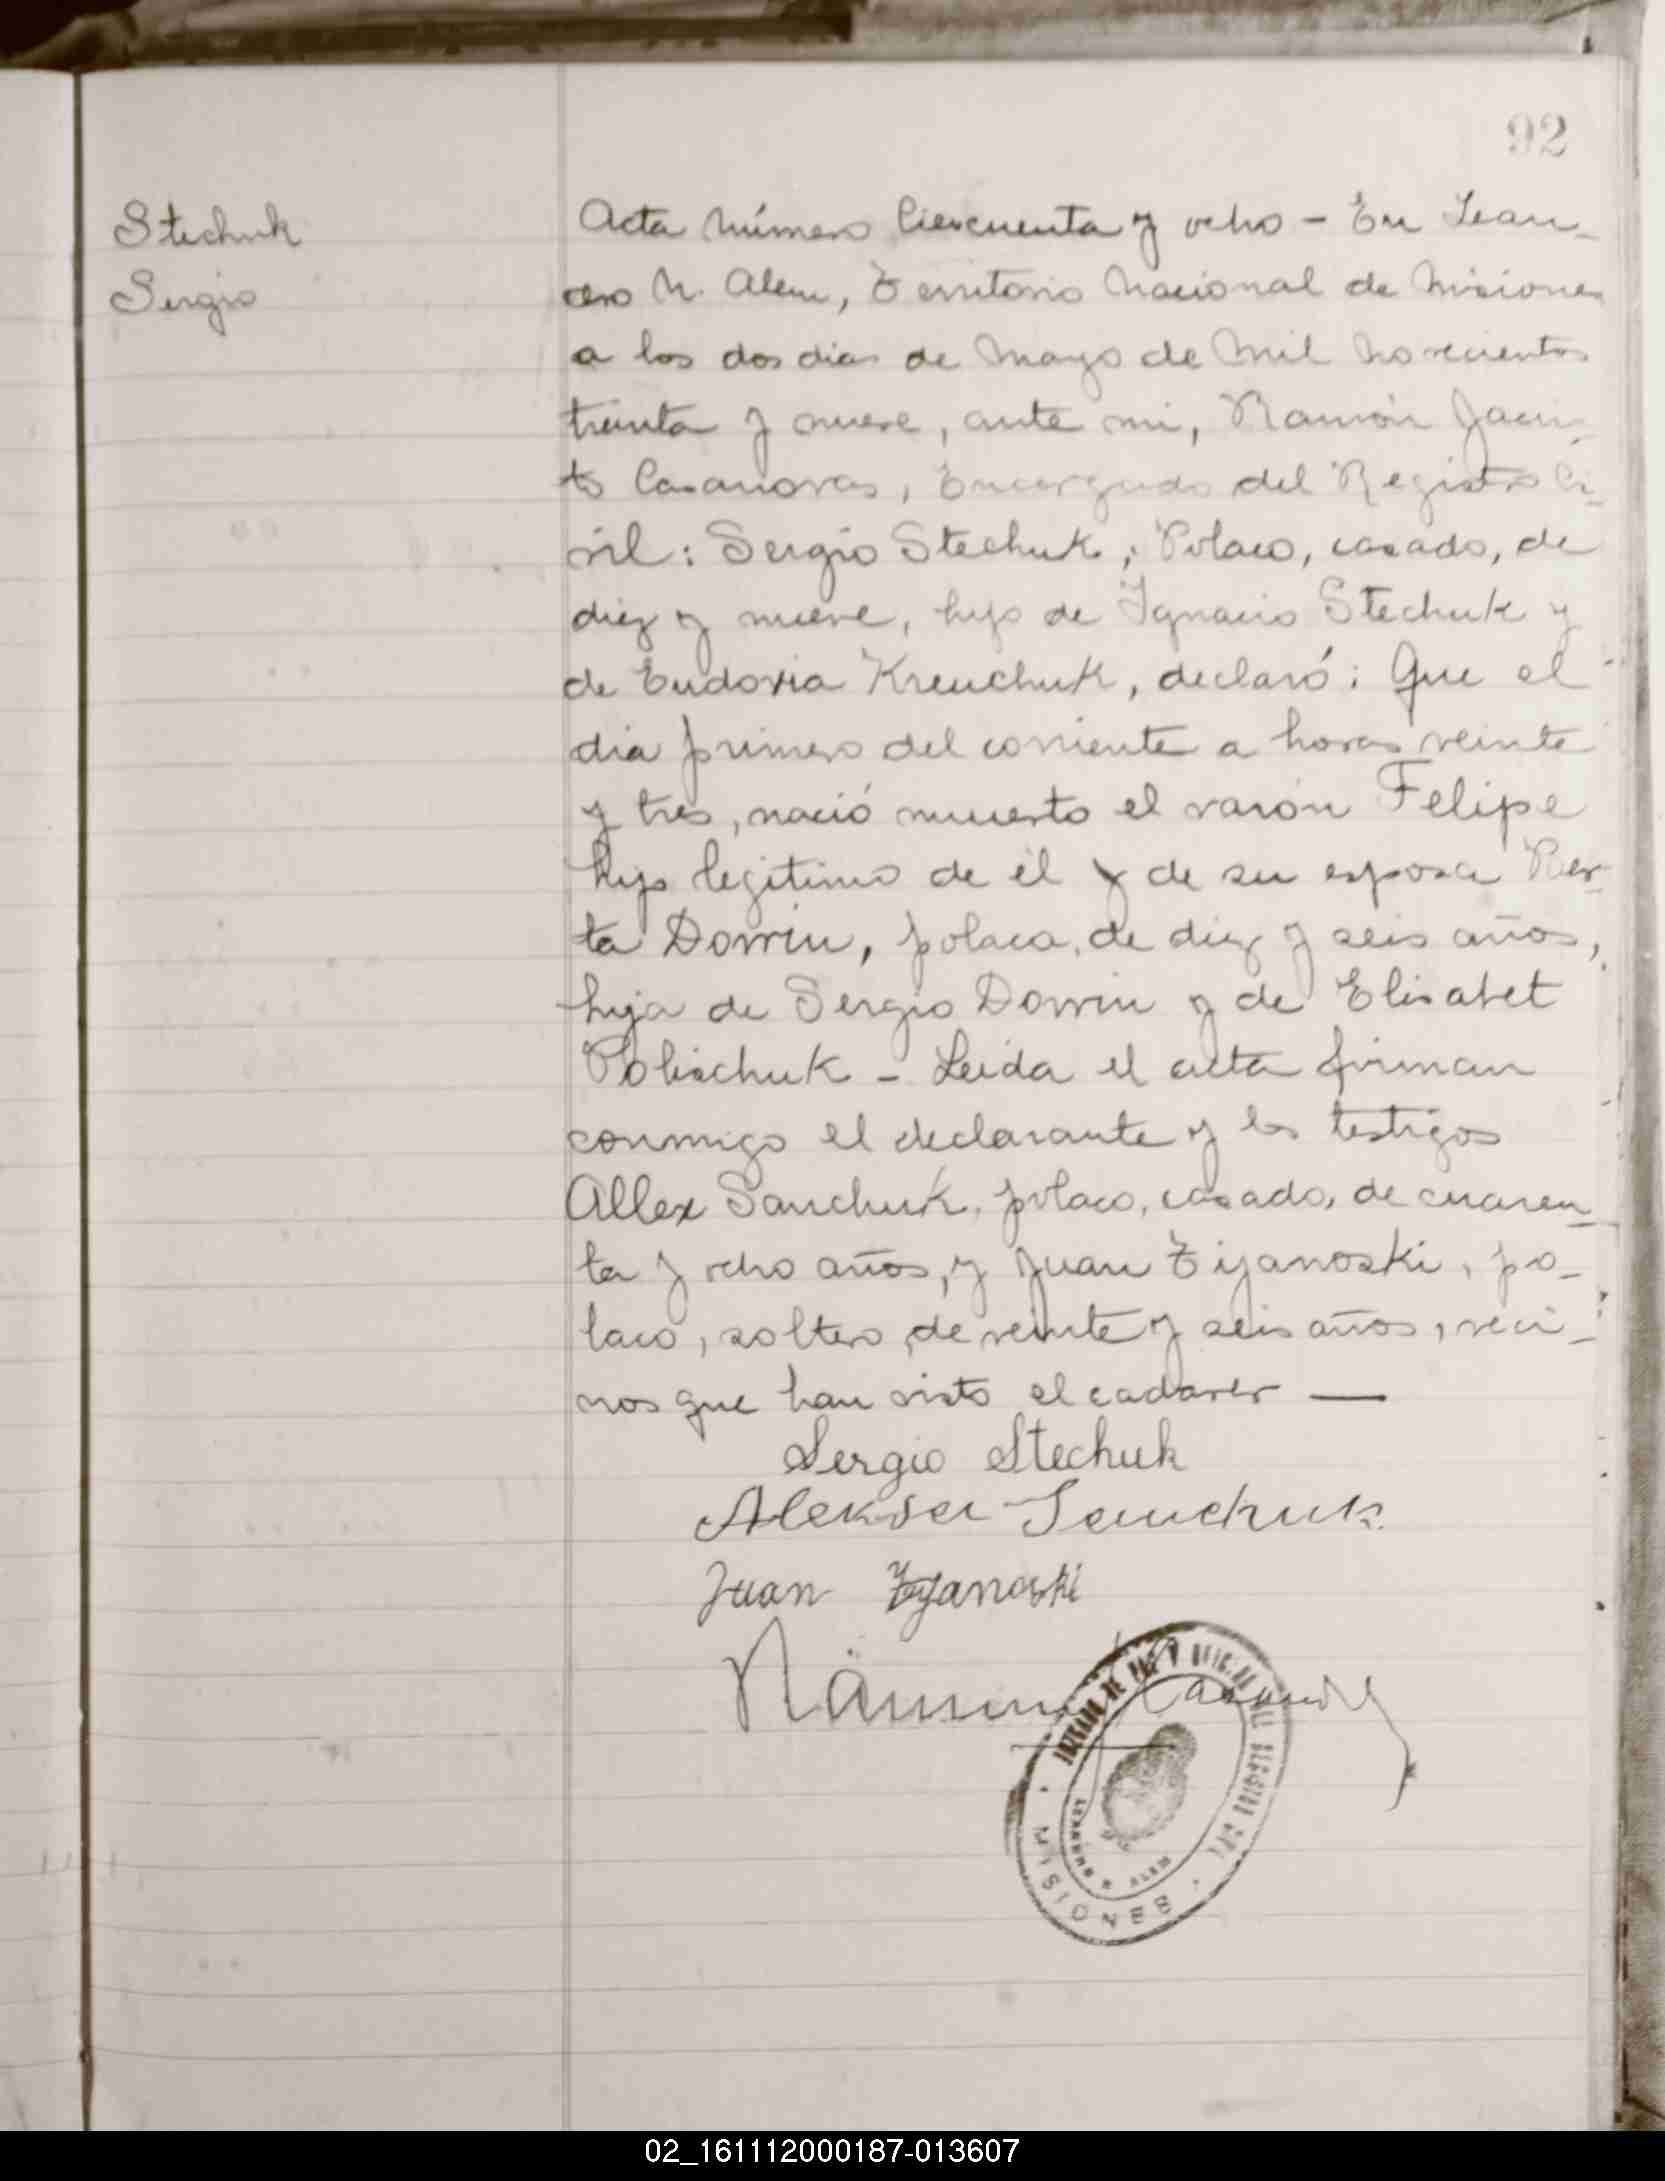 92
Stechuk
Sergio
Acta número Cincuenta y ocho - En Lean-
dro N. Alem, Territorio Nacional de Misiones
a los dos dias de Mayo de Mil novecientos
treinta y nueve, ante mi, Ramón Jacin-
to Casanovas, Encargado del Registro Ci-
vil: Sergio Stechuk, Polaco, casado, de
diez y nueve, hijo de Ignacio Stechuk y
de Eudoxia Kreuchuk, declaró: Que el
dia primero del corriente a horas veinte
y tres, nació muerto el varón Felipe
hijo legitimo de él y de su esposa Ber-
ta Dorrin, polaca, de diez y seis años,
hija de Sergio Dorrin y de Elisabet
Polischuk - Leida el acta firman
conmigo el declarante y los testigos
Allex Sanchuk, polaco, casado, de cuaren-
ta y ocho años, y Juan Zijanoski, po-
laco, soltero, de veinte y seis años, veci-
nos que han visto el cadaver —
Sergio Stechuk
Aleksei Senchuk
Juan Zyanoski
Ramón Casanovas
JUZGADO DE PAZ Y OFICINA DEL REGISTRO CIVIL
LEANDRO N. ALEM
MISIONES
02_161112000187-013607